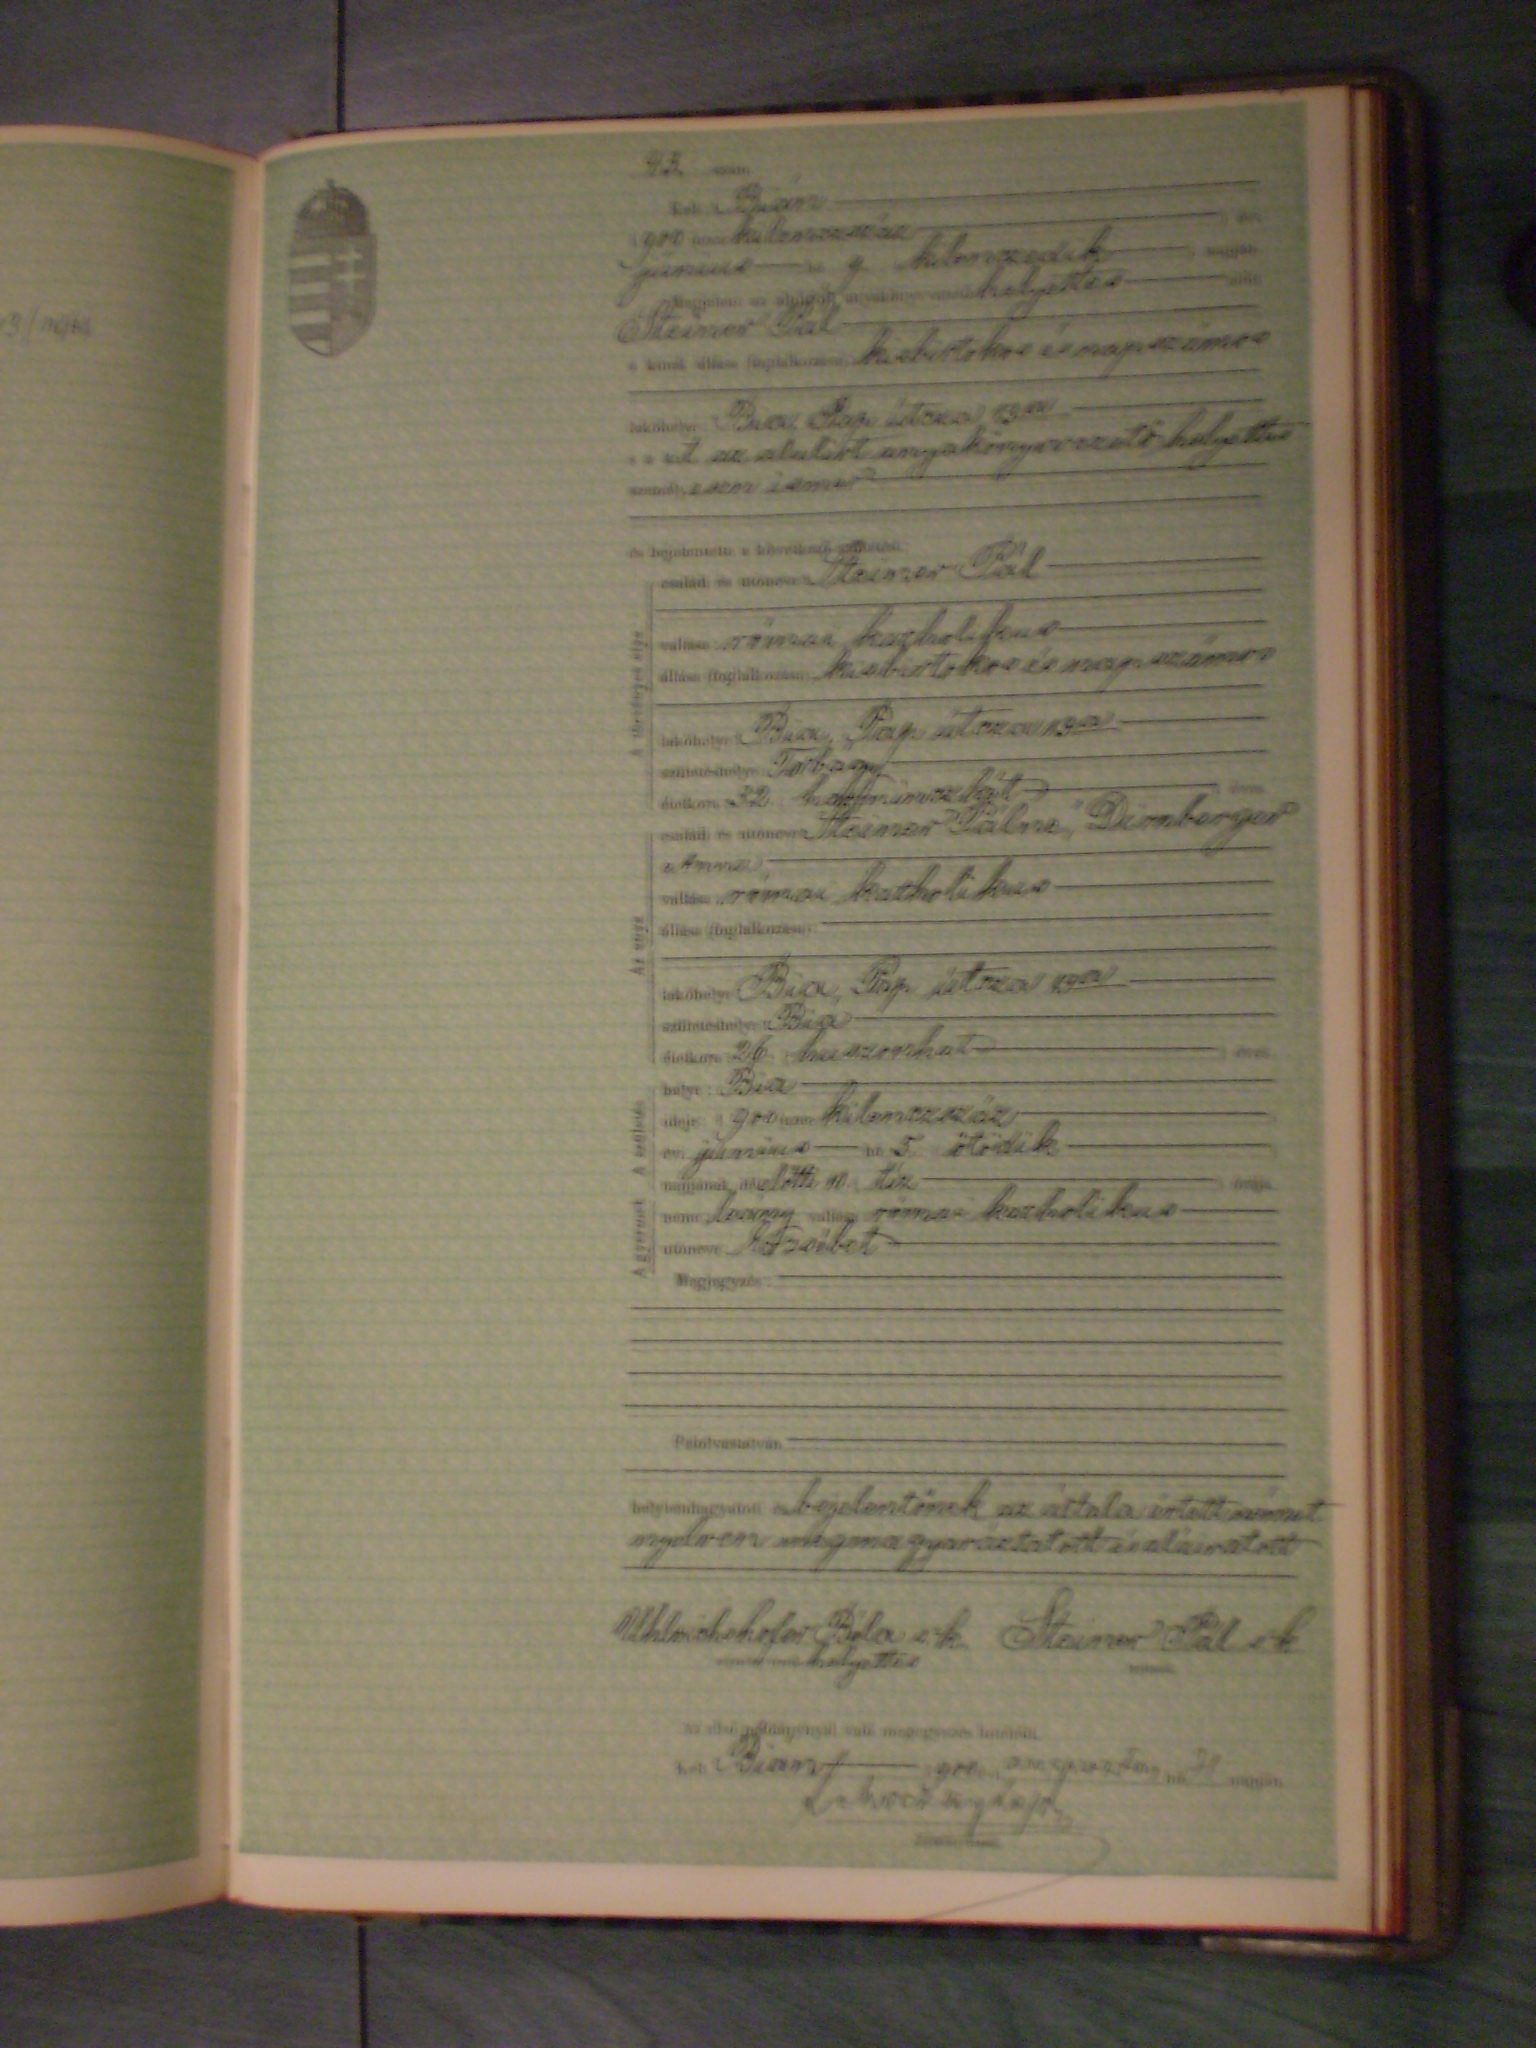 93. szám.
Kelt Bián
900 azaz kilenczszáz évi
június hó 9. kilenczedik napján.
Megjelent az alulírott anyakönyvvezető helyettes előtt
Steiner Pál
a kinek állása (foglalkozása) kisbirtokos és napszámos
lakóhelye: Bia, Pap útcza
s a kit az alulírt anyakönyvvezető helyettes
személyesen ismer
és bejelentette a következő születést:
A törvényes atya
családi és utóneve: Steiner Pál
vallása: római katholikus
állása (foglalkozása): kisbirtokos és napszámos
lakóhelye: Bia, Pap útcza
születéshelye: Torbágy
életkora: 32 harminczkét éves
Az anya
családi és utóneve: Steiner Pálné, Dirnberger
Anna
vallása: római katholikus
állása (foglalkozása):
lakóhelye: Bia, Pap útcza
születéshelye: Bia
életkora: 26 huszonhat éves.
A születés
helye: Bia
ideje: 900 azaz kilenczszáz
évi június hó 5. ötödik
napjának délelőtti 10. tíz órája
A gyermek
neme: leány vallása: római katholikus
utóneve: Erzsébet
Megjegyzés:
Felolvastatván,
helybenhagyatott és bejelentőnek az általa értett német
nyelven megmagyaráztatott és aláíratott
Béla s.k. Steiner Pál s.k.
helyettes
Az első példánnyal való megegyezés hiteléül.
Kelt Bián, 900. augusztus hó 31 napján.